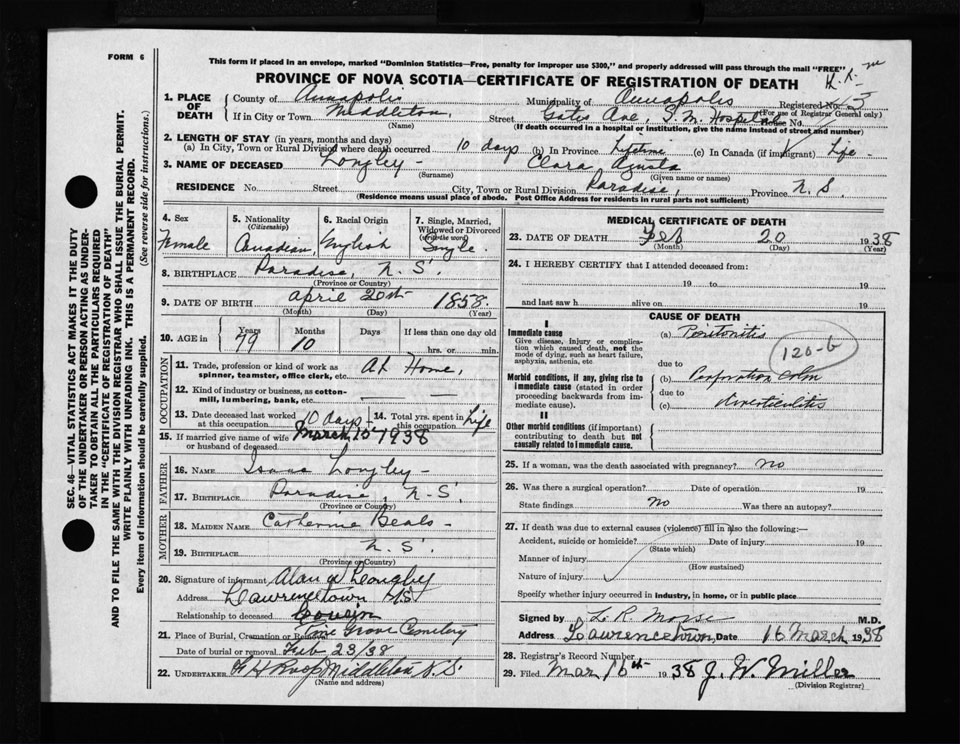 FORM 6
This form if placed in an envelope, marked "Dominion Statistics—Free, penalty for improper use $300," and properly addressed will pass through the mail "FREE"
PROVINCE OF NOVA SCOTIA—CERTIFICATE OF REGISTRATION OF DEATH
1. PLACE OF DEATH County of Annapolis Municipality of Annapolis Registered No. 5
If in City or Town Middleton, Street Gates Ave, S. M. Hospital House No. (For use of Registrar General only)
(Name) (If death occurred in a hospital or institution, give the name instead of street and number)
2. LENGTH OF STAY (in years, months and days)
(a) In City, Town or Rural Division where death occurred 10 days (b) In Province Lifetime (c) In Canada (if immigrant) Life -
3. NAME OF DECEASED Longley - Clara Agusta
(Surname) (Given name or names)
RESIDENCE No. Street City, Town or Rural Division Paradise, Province N.S.
(Residence means usual place of abode. Post Office Address for residents in rural parts not sufficient)
4. Sex Female
5. Nationality (Citizenship) Canadian,
6. Racial Origin English
7. Single, Married, Widowed or Divorced (Write the word) Single.
8. BIRTHPLACE Paradise, N.S.
(Province or Country)
9. DATE OF BIRTH April 20th 1858.
(Month) (Day) (Year)
10. AGE in Years 79 Months 10 Days If less than one day old hrs. or min.
OCCUPATION
11. Trade, profession or kind of work as spinner, teamster, office clerk, etc. At Home,
12. Kind of industry or business, as cotton-mill, lumbering, bank, etc. —
13. Date deceased last worked at this occupation 10 days
14. Total yrs. spent in this occupation Life
March 10th 1938
15. If married give name of wife or husband of deceased
FATHER
16. NAME Isaac Longley -
17. BIRTHPLACE Paradise, N.S.
(Province or Country)
MOTHER
18. MAIDEN NAME Catherine Beals -
19. BIRTHPLACE N.S.
(Province or Country)
20. Signature of informant Alan W Longley
Address Lawrencetown NS
Relationship to deceased Cousin
21. Place of Burial, Cremation or Removal Pine Grove Cemetery
Date of burial or removal Feb 23/38
22. UNDERTAKER Roop Middleton N.S.
(Name and address)
MEDICAL CERTIFICATE OF DEATH
23. DATE OF DEATH Feb 20 1938
(Month) (Day) (Year)
24. I HEREBY CERTIFY that I attended deceased from:
19 to 19
and last saw h alive on 19
CAUSE OF DEATH
I
Immediate cause (a) Peritonitis
Give disease, injury or complication which caused death, not the mode of dying, such as heart failure, asphyxia, asthenia, etc.
120-b
due to
Morbid conditions, if any, giving rise to immediate cause (stated in order proceeding backwards from immediate cause). (b) Perforation Colon
due to
(c) Diverticulitis
II
Other morbid conditions (if important) contributing to death but not causally related to immediate cause.
25. If a woman, was the death associated with pregnancy? No
26. Was there a surgical operation? Date of operation 19
State findings No Was there an autopsy?
27. If death was due to external causes (violence) fill in also the following:—
Accident, suicide or homicide? Date of injury 19
(State which)
Manner of injury
(How sustained)
Nature of injury
Specify whether injury occurred in industry, in home, or in public place
Signed by L. R. Morse M.D.
Address Lawrencetown, Date 16 March 1938
28. Registrar's Record Number
29. Filed Mar 16th 1938 J. W. Miller
(Division Registrar)
SEC. 46—VITAL STATISTICS ACT MAKES IT THE DUTY
OF THE UNDERTAKER OR PERSON ACTING AS UNDER-
TAKER TO OBTAIN ALL THE PARTICULARS REQUIRED
IN THE "CERTIFICATE OF REGISTRATION OF DEATH"
AND TO FILE THE SAME WITH THE DIVISION REGISTRAR WHO SHALL ISSUE THE BURIAL PERMIT.
WRITE PLAINLY WITH UNFADING INK. THIS IS A PERMANENT RECORD.
Every item of information should be carefully supplied. (See reverse side for instructions.)